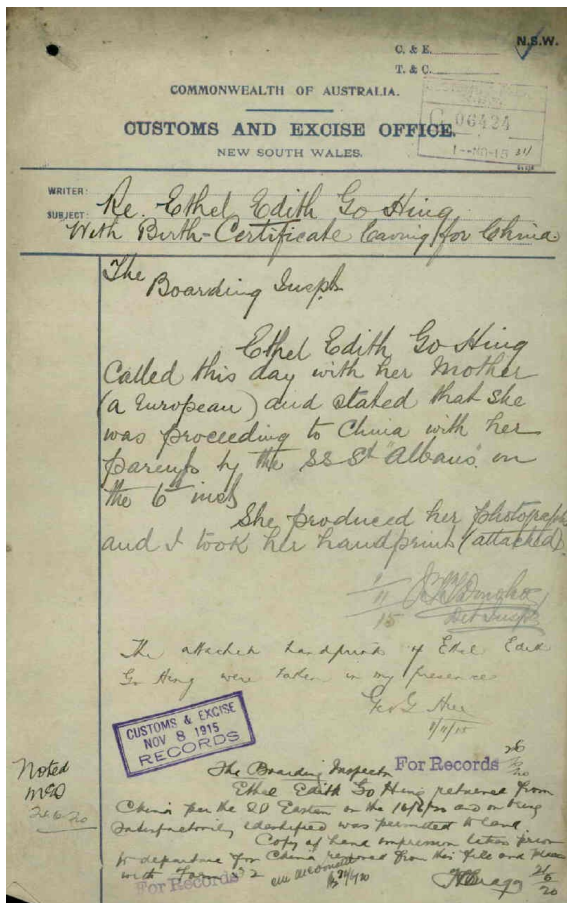 N.S.W.
C. & E.
T. & C.
COMMONWEALTH OF AUSTRALIA.
CUSTOMS AND EXCISE OFFICE.
NEW SOUTH WALES.
06424
WRITER:
SUBJECT:
Re. Ethel Edith Go Hing
With Birth-Certificate Leaving for China
The
Boarding Inspr.
Ethel Edith Go Hing
Called this day with her Mother
(a European) and stated that she
was proceeding to China with her
parents by the SS St "Albans" on
the 6th inst
She produced her photograph
and I took her handprints (attached).
1/11/15
Det Inspr
The attached handprints of Ethel Edith
Go Hing were taken in my presence
1/11/15
CUSTOMS & EXCISE
NOV 8 1915
RECORDS
Noted
24-6-20
For Records
The Boarding Inspector
Ethel Edith Go Hing returned from
China per the SS Eastern on the and on being
satisfactorily identified was permitted to land
Copy of hand impression taken prior
to departure for China removed from this file and placed
with Form 32
For Records